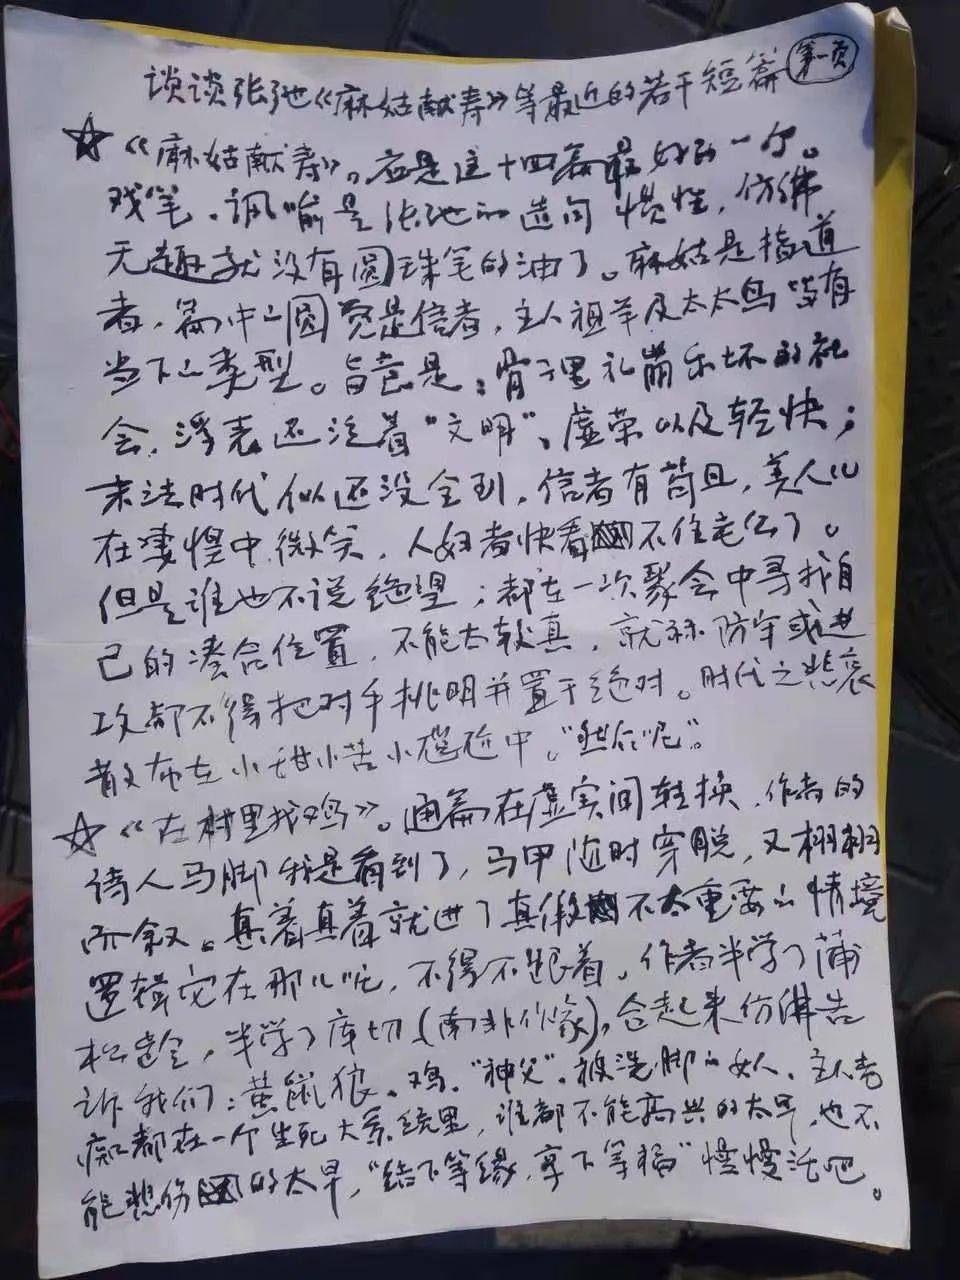 谈谈张弛《麻姑献寿》等最近的若干短篇
第一页
☆《麻姑献寿》。应是这十四篇最好的一个。
戏笔、讽喻是张弛的造句惯性,仿佛
无趣就没有圆珠笔的油了。麻姑是指道
者,篇中之圆觉是信者,主人祖羊及太太鸟皆有
当下之类型。旨意是:骨子里礼崩乐坏的社
会,浮表还泛着“文明”、虚荣以及轻快;
末法时代似还没全到,信者有苟且,美人儿
在凄惶中微笑,人妇者快看不住老公了。
但是谁也不说绝望;都在一次聚会中寻找自
己的凑合位置,不能太较真,就称防守或进
攻都不得把对手挑明并置于绝对。时代之悲哀
散布在小甜小苦小尴尬中。“然后呢”。
☆《在村里找鸡》。通篇在虚实间转换,作者的
诗人马脚我是看到了,马甲随时穿脱,又栩栩
而叙。真着真着就进了真假不太重要的情境
逻辑它在那儿呢,不得不跟着。作者半学了蒲
松龄,半学了库切(南非作家),合起来仿佛告
诉我们:黄鼠狼、鸡、“神父”、被洗脚的女人、主人老
痴都在一个生死大系统里,谁都不能高兴的太早,也不
能悲伤的太早,“结下等缘,享下等福”慢慢活吧。